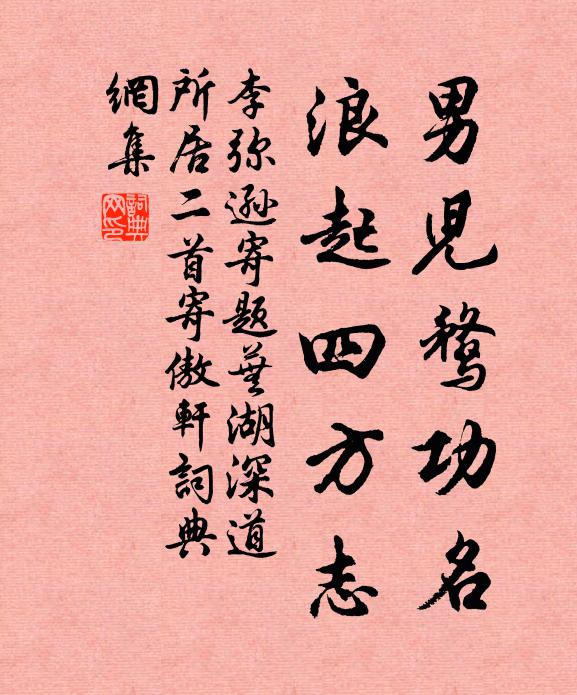 男児鶩功名
浪起四方志
李弥遜寄題蕪湖深道
所居二首寄傲軒詞典
網集
詞典
网印